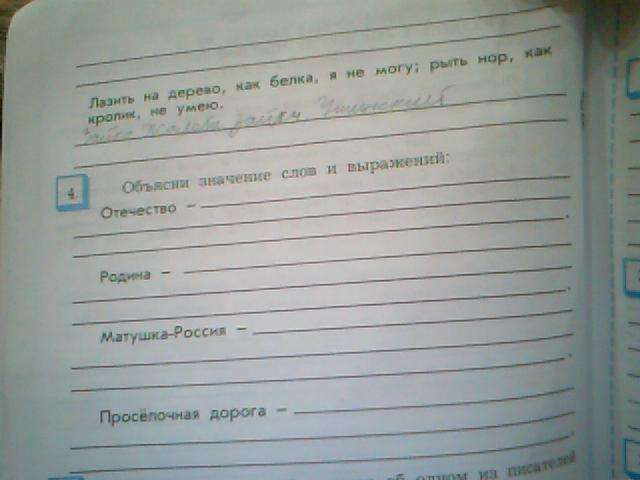 Лазить на дерево, как белка, я не могу; рыть нор, как
кролик, не умею.
Зайка Жалобы зайки Ушинский
4.
Объясни значение слов и выражений:
Отечество –
Родина –
Матушка-Россия –
Просёлочная дорога –
об одном из писателей